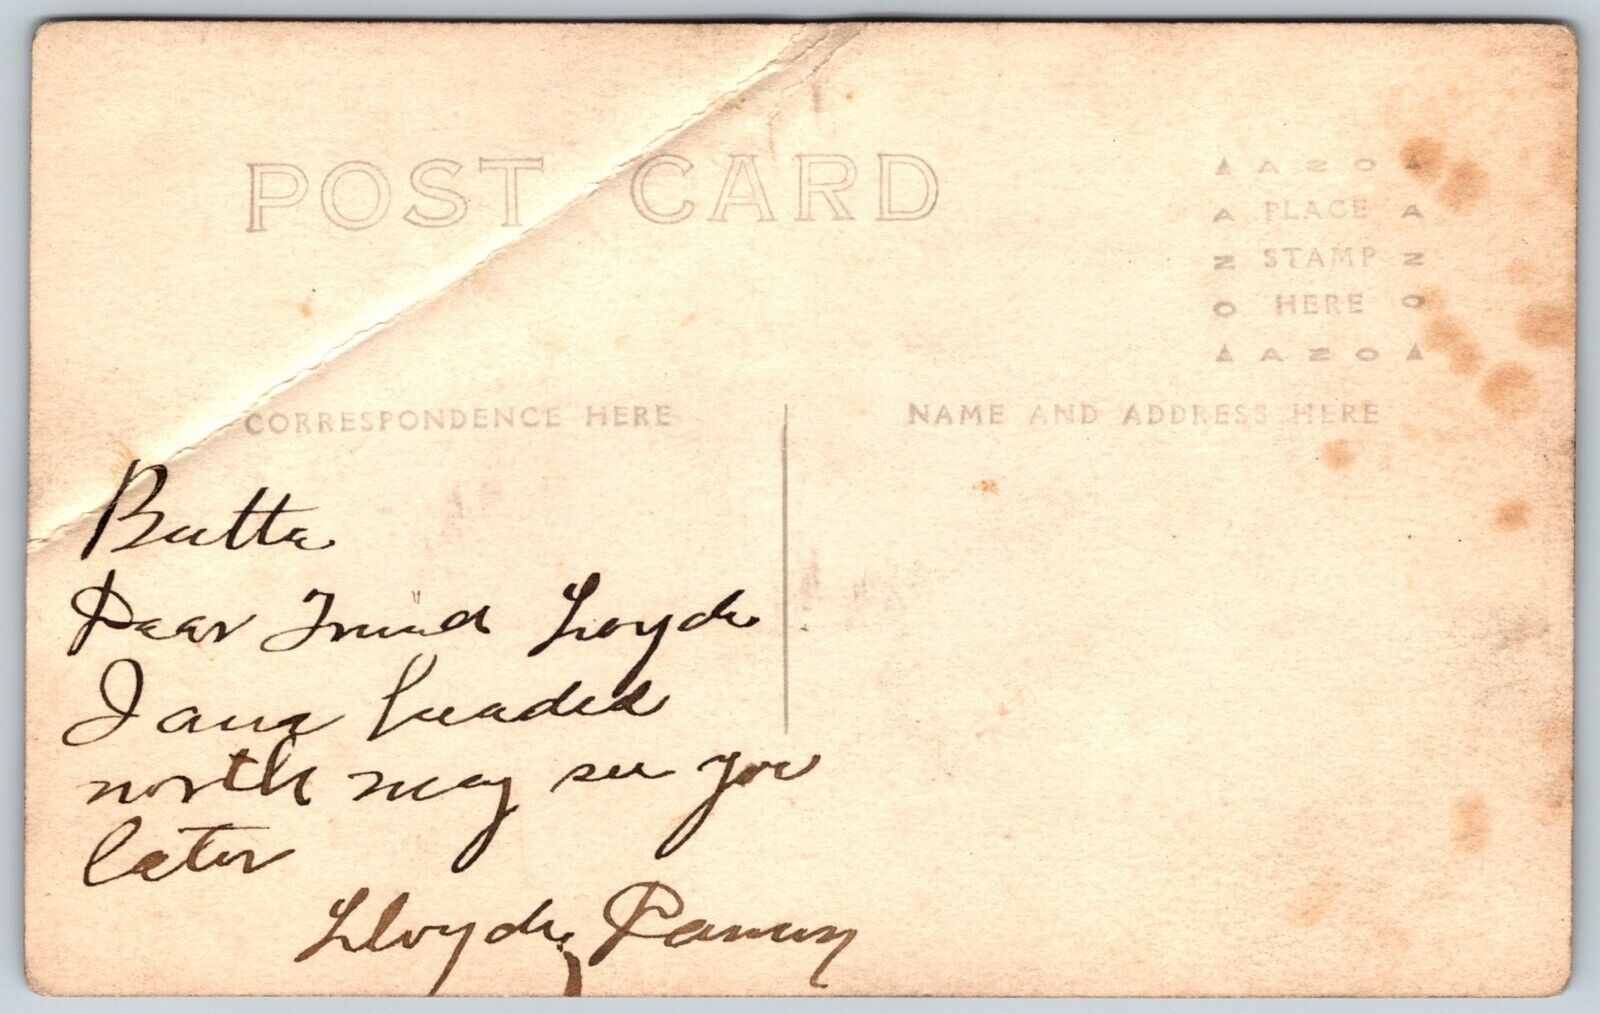 POST CARD
▲ AZO ▲
A PLACE A
N STAMP N
O HERE O
▲ AZO ▲
CORRESPONDENCE HERE
NAME AND ADDRESS HERE
Butte
Dear Friend Loyde
I am headed
north may see you
later
Lloyde